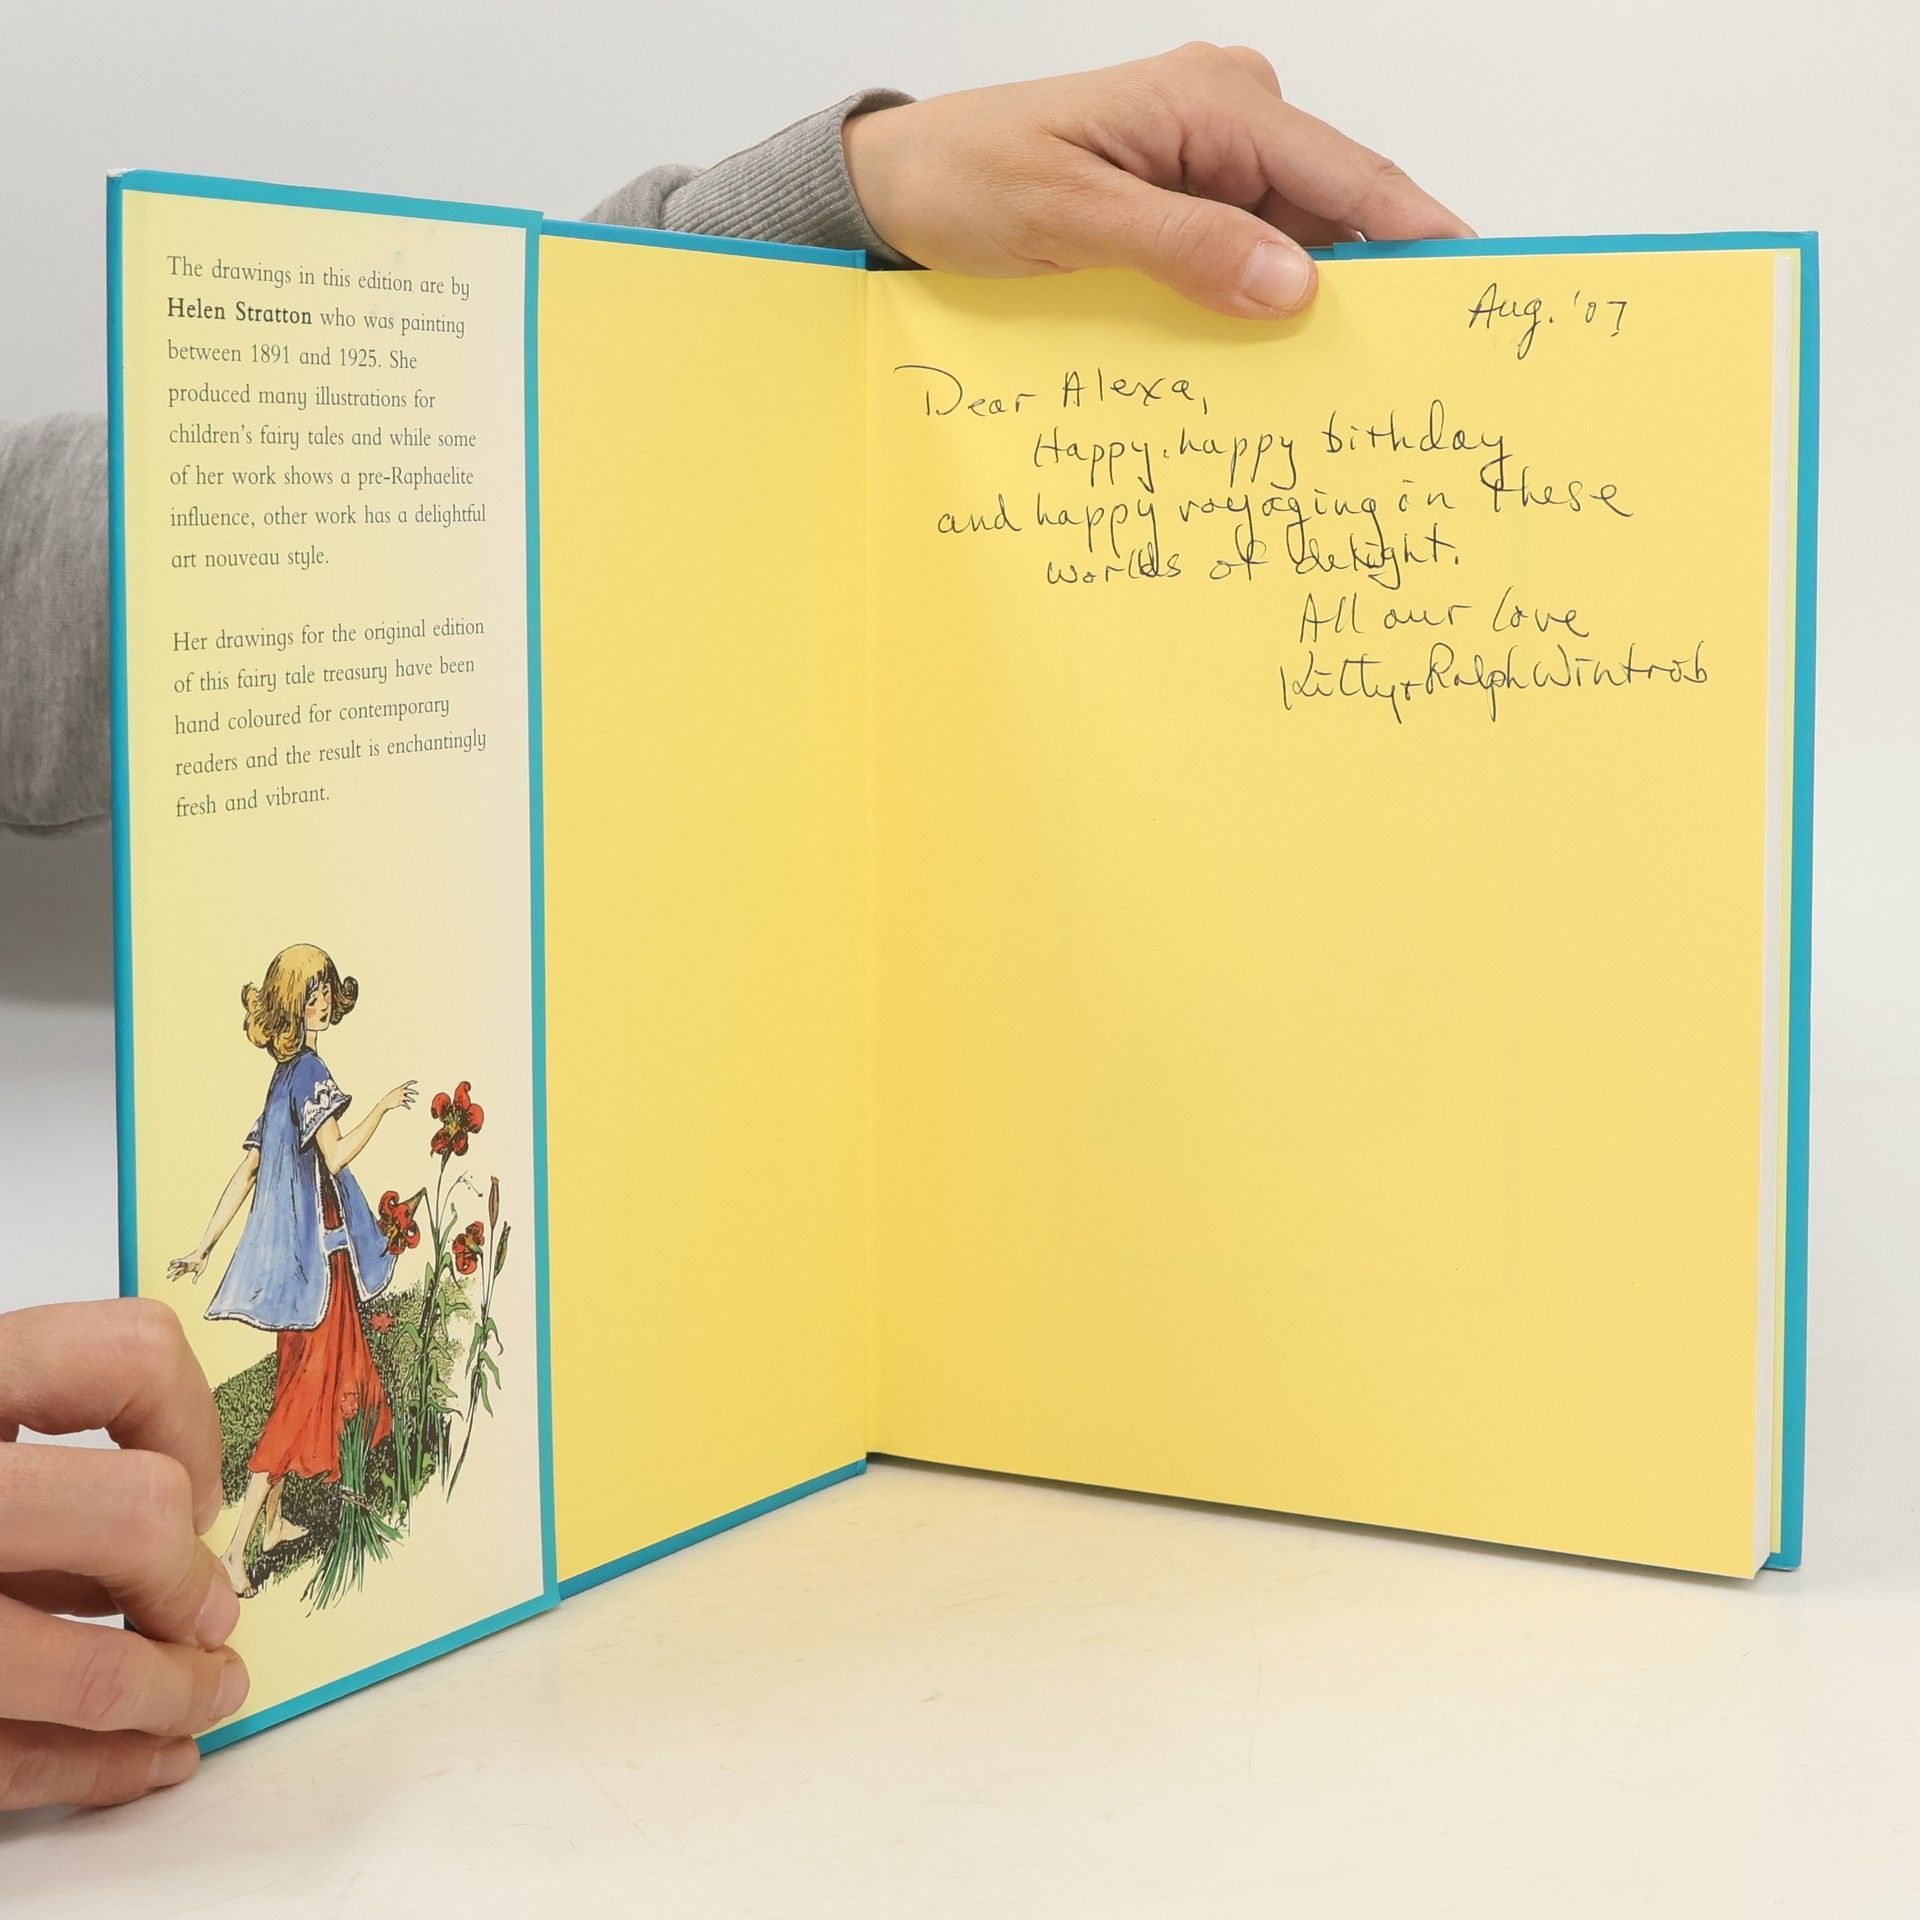 The drawings in this edition are by
Helen Stratton who was painting
between 1891 and 1925. She
produced many illustrations for
children's fairy tales and while some
of her work shows a pre-Raphaelite
influence, other work has a delightful
art nouveau style.
Her drawings for the original edition
of this fairy tale treasury have been
hand coloured for contemporary
readers and the result is enchantingly
fresh and vibrant.
Aug. '07
Dear Alexa,
Happy, happy birthday
and happy voyaging in these
worlds of delight.
All our love
Kitty + Ralph Wintrob